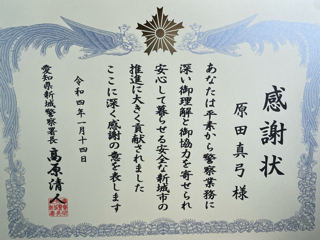 感謝状
原田真弓様
あなたは平素から警察業務に
深い御理解と御協力を寄せられ
安心して暮らせる安全な新城市の
推進に大きく貢献されました
ここに深く感謝の意を表します
令和四年一月十四日
愛知県新城警察署長 高原清人